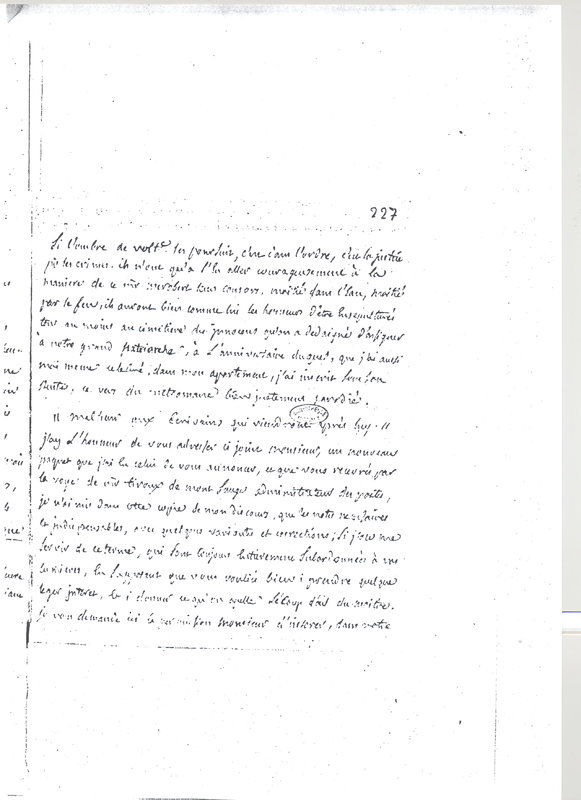 227
Si l'ombre de volt.re les poursuit, c'est dans l'ordre, c'est la justice
les crimes. ils n'ont qu'à s'en aller courageusement à la
manière de ce mr leur consors, moitié dans l'eau, moitié
par le feu, ils auront bien comme lui les honneurs d'être
tous au moins au cimetière des innocens qu'on a dedaigné d'assigner
à notre grand patriarche, à l'anniversaire duquel, que j'ai aussi
moi meme celebré, dans mon apartement, j'ai inscrit sous son
buste, ce vers du metromane bien justement parodié.
" malheur aux Ecrivains qui viendront après luy "
j'ay l'honneur de vous adresser ci joint monsieur, un nouveau
paquet que j'ai celui de vous annoncer, et que vous recevrez par
la voye de mr administrateur des postes,
je n'ai mis dans cette copie de mon discours, que les notes necessaires
et indispensables, avec quelques variantes et corrections, si j'ose me
servir de ce terme, qui sont toujours entierement subordonnées à vos
lumieres, en supposant que vous vouliez bien i prendre quelque
leger interet, et i donner ce qu'on apelle le coup d'œil du maitre.
je vous demande ici la permission monsieur d'inserer, dans notre